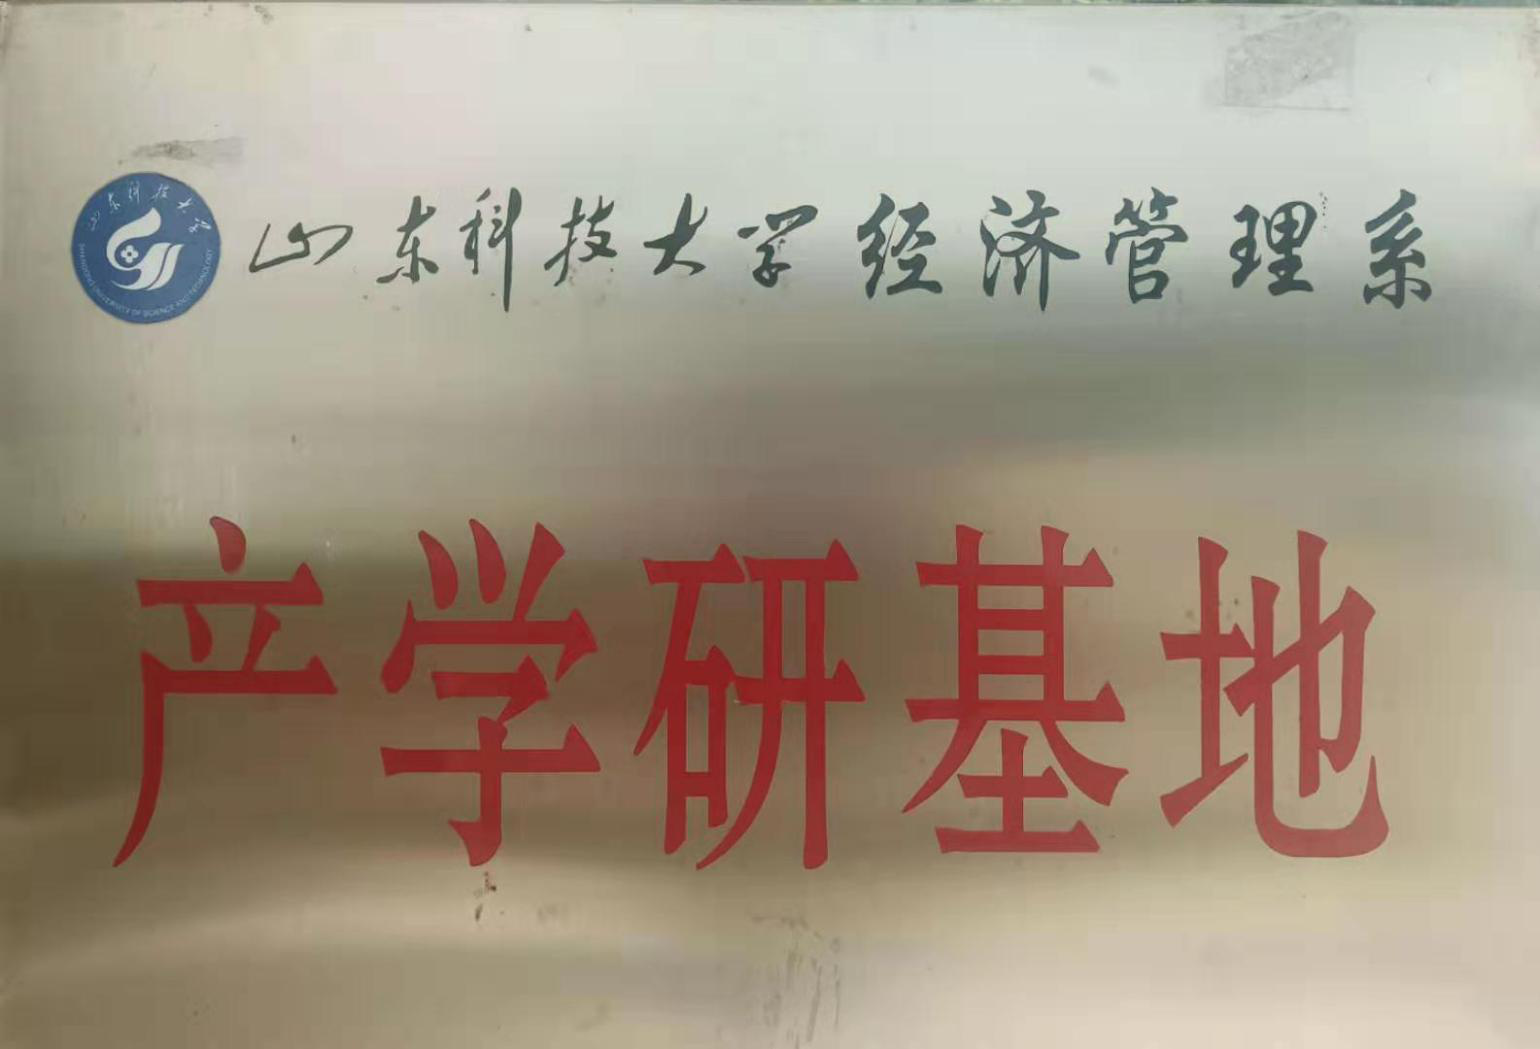 山东科技大学
SHANDONG UNIVERSITY OF SCIENCE AND TECHNOLOGY
山东科技大学经济管理系
产学研基地